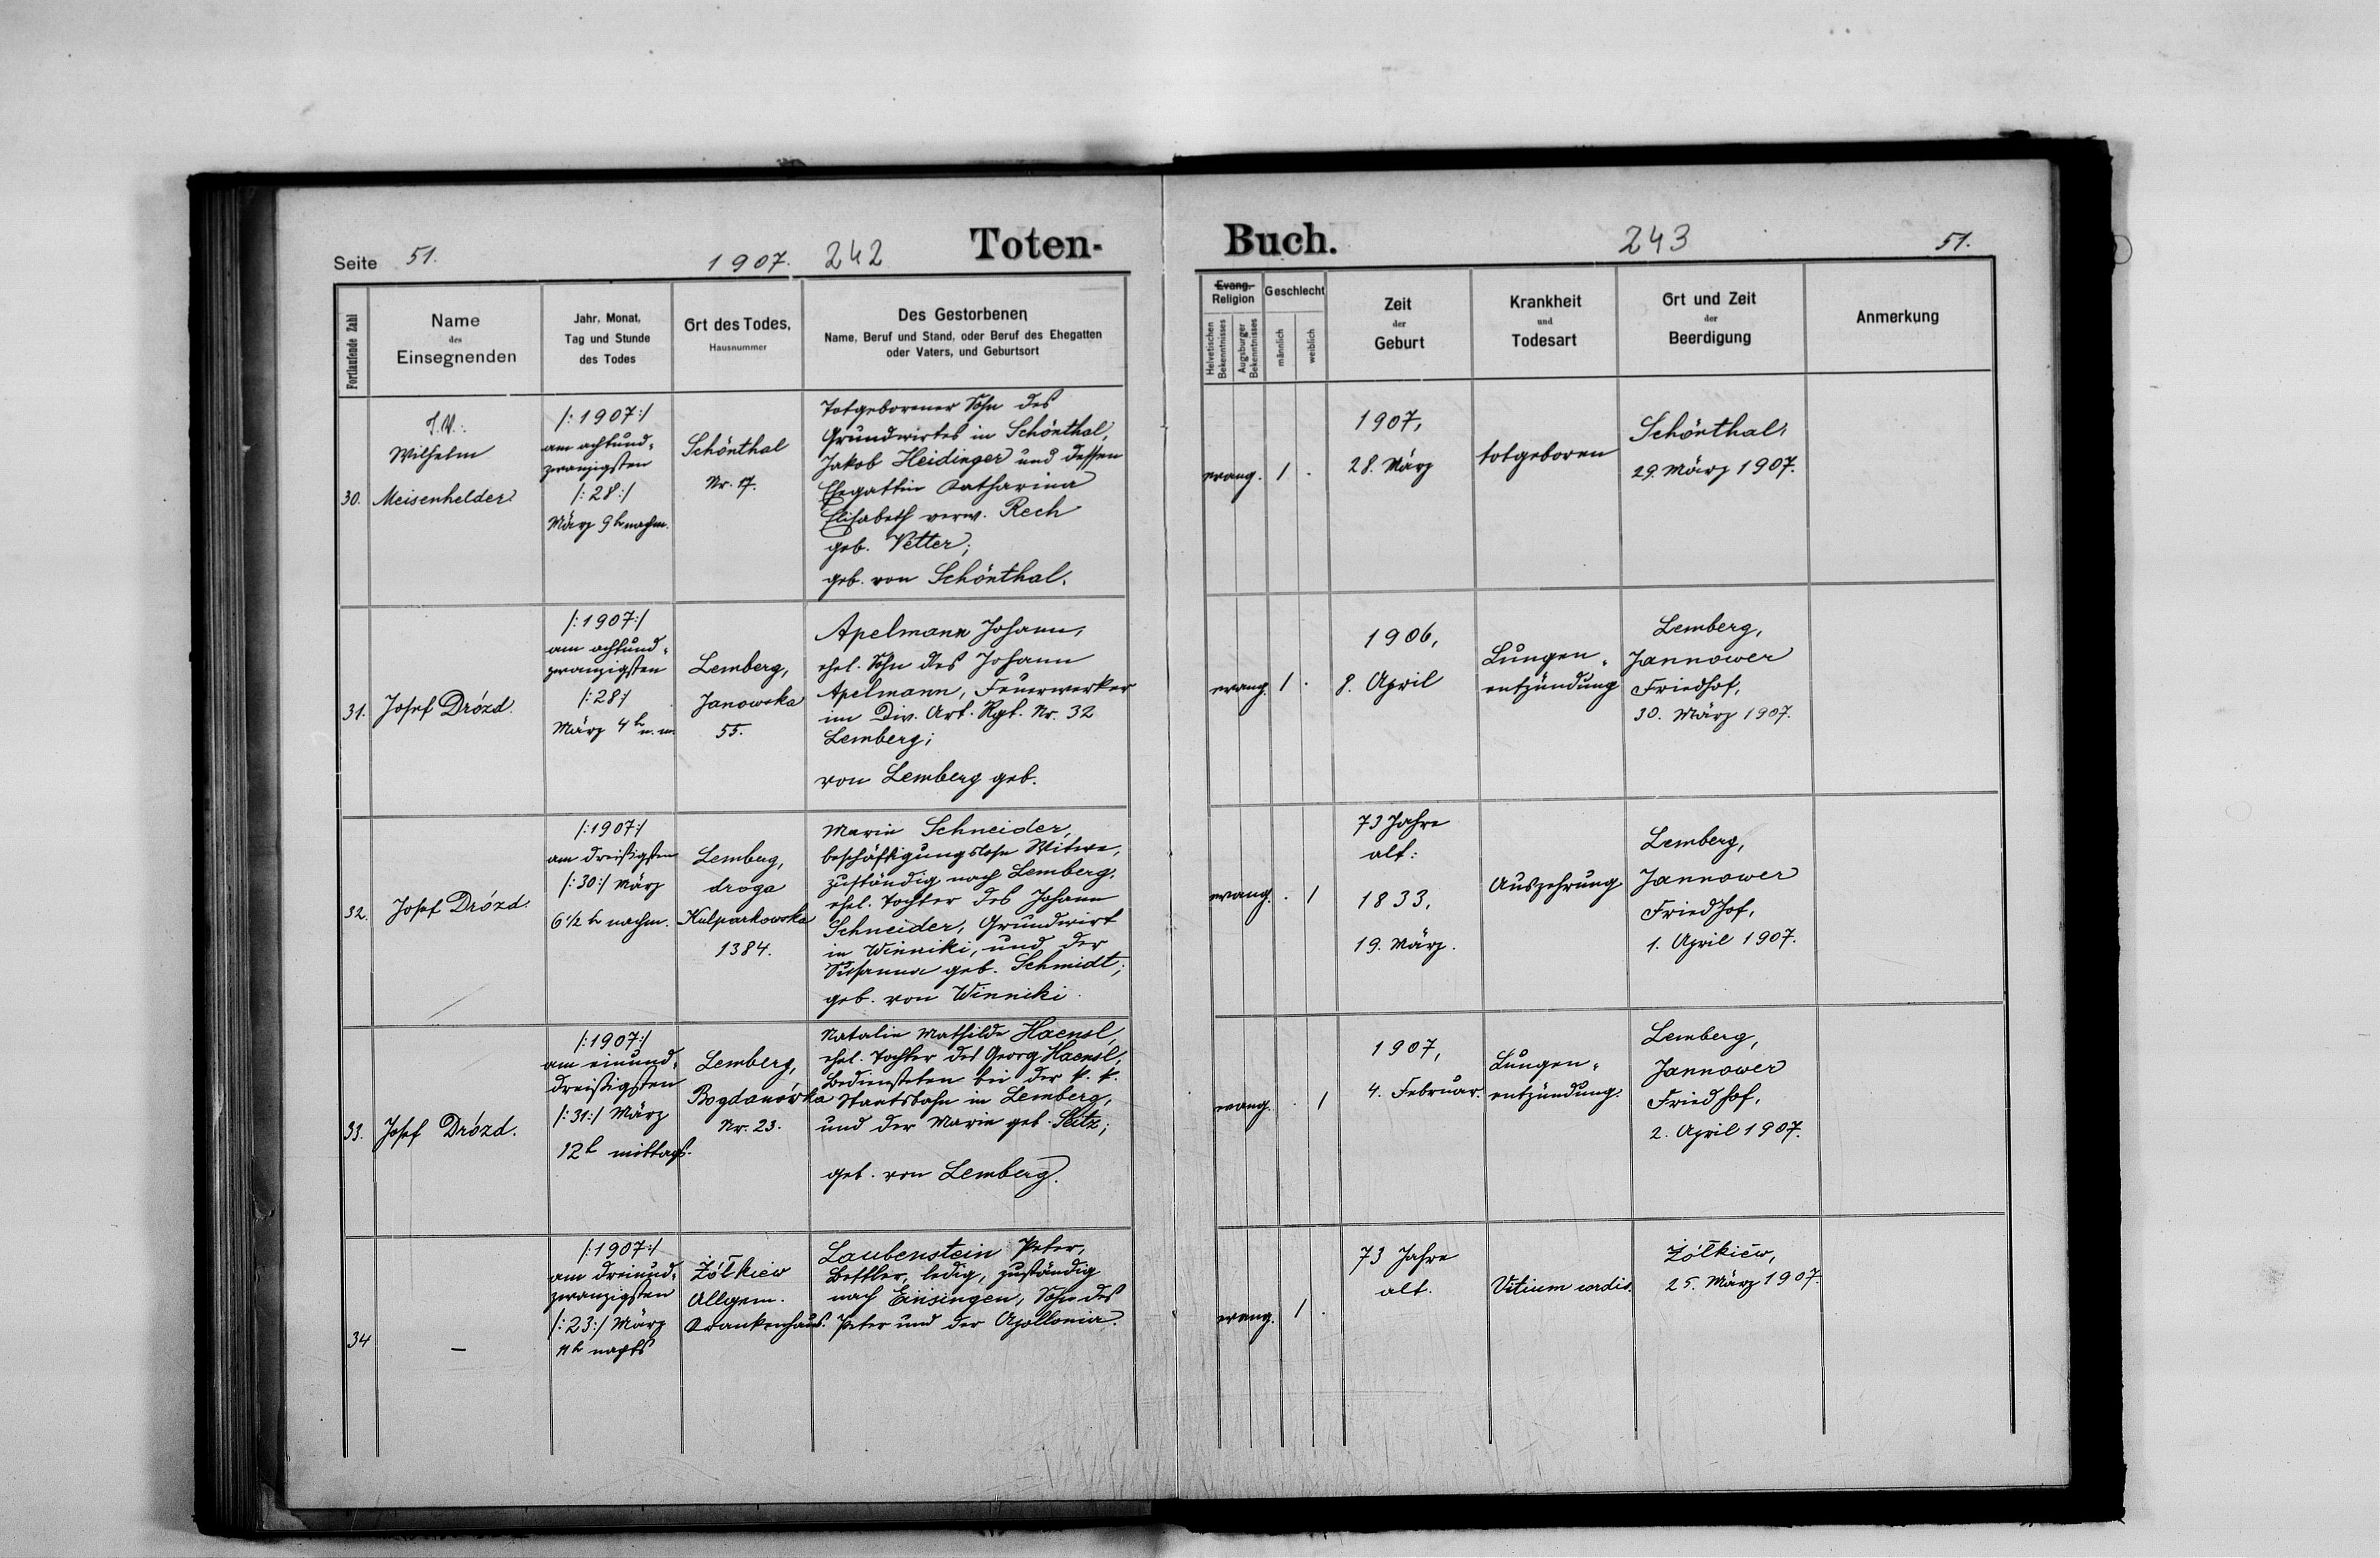 Seite 51.
1907. 242
Toten-
Fortlaufende Zahl
Name
des
Einsegnenden
Jahr, Monat,
Tag und Stunde
des Todes
Ort des Todes,
Hausnummer
Des Gestorbenen
Name, Beruf und Stand, oder Beruf des Ehegatten
oder Vaters, und Geburtsort
30.
I.V.:
Wilhelm
Meisenhelder
/:1907:/
am achtund-
zwanzigsten
/:28:/
März 9h nachm.
Schönthal
Nr. 17.
Totgeborener Sohn des
Grundwirtes in Schönthal,
Jakob Heidinger und dessen
Ehegattin Katharina
Elisabeth verw. Rech
geb. Vetter;
geb. von Schönthal.
31.
Josef Drózd.
/:1907:/
am achtund-
zwanzigsten
/:28:/
März 4h n.m.
Lemberg,
Janowska
55.
Apelmann Johann,
ehel. Sohn des Johann
Apelmann, Feuerwerker
im Div. Art. Rgt. Nr. 32
Lemberg;
von Lemberg geb.
32.
Josef Drózd.
/:1907:/
am dreißigsten
/:30:/ März
6 1/2 h nachm.
Lemberg,
droga
Kulparkowska
1384.
Marie Schneider,
beschäftigungslose Witwe,
zuständig nach Lemberg,
ehel. Tochter des Johann
Schneider, Grundwirt
in Winniki, und der
Susanna geb. Schmidt;
geb. von Winniki.
33.
Josef Drózd.
/:1907:/
am einund-
dreißigsten
/:31:/ März
12h mittags.
Lemberg,
Bogdanówka
Nr. 23.
Natalie Mathilde Haensl,
ehel. Tochter des Georg Haensl,
Bediensteten bei der k. k.
Staatsbahn in Lemberg,
und der Marie geb. Seitz;
geb. von Lemberg.
34
–
/:1907:/
am dreiund-
zwanzigsten
/:23:/ März
11h nachts
Żółkiew
Allgem.
Krankenhaus.
Laubenstein Peter,
Bettler, ledig, zuständig
nach Einsingen, Sohn des
Peter und der Apollonia.
Buch.
243
51.
Evang.
Religion
Helvetischen
Bekenntnisses
Augsburger
Bekenntnisses
Geschlecht
männlich
weiblich
Zeit
der
Geburt
Krankheit
und
Todesart
Ort und Zeit
der
Beerdigung
Anmerkung
evang. 1 .
1907,
28. März
totgeboren
Schönthal,
29. März 1907.
evang. 1 .
1906,
8. April
Lungen-
entzündung
Lemberg,
Jannower
Friedhof,
30. März 1907.
evang. . 1
73 Jahre
alt:
1833,
19. März.
Auszehrung
Lemberg,
Jannower
Friedhof,
1. April 1907.
evang. . 1
1907,
4. Februar.
Lungen-
entzündung.
Lemberg,
Jannower
Friedhof,
2. April 1907.
evang. 1 .
73 Jahre
alt.
Vitium cordis.
Żółkiew,
25. März 1907.